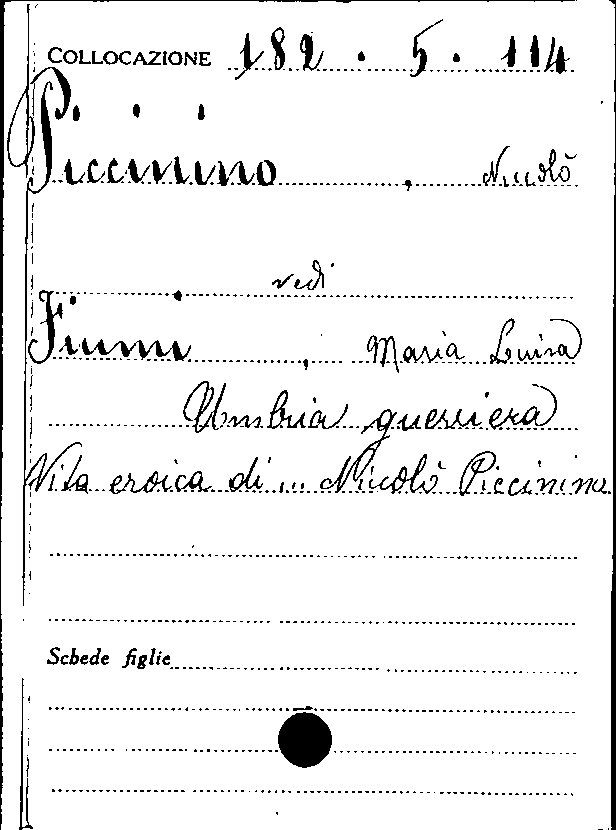 COLLOCAZIONE 182 . 5 . 114
Piccinino , Niccolò
vedi
Fiumi , Maria Luisa
Umbria guerriera
Vita eroica di ... Niccolò Piccinino
Schede figlie